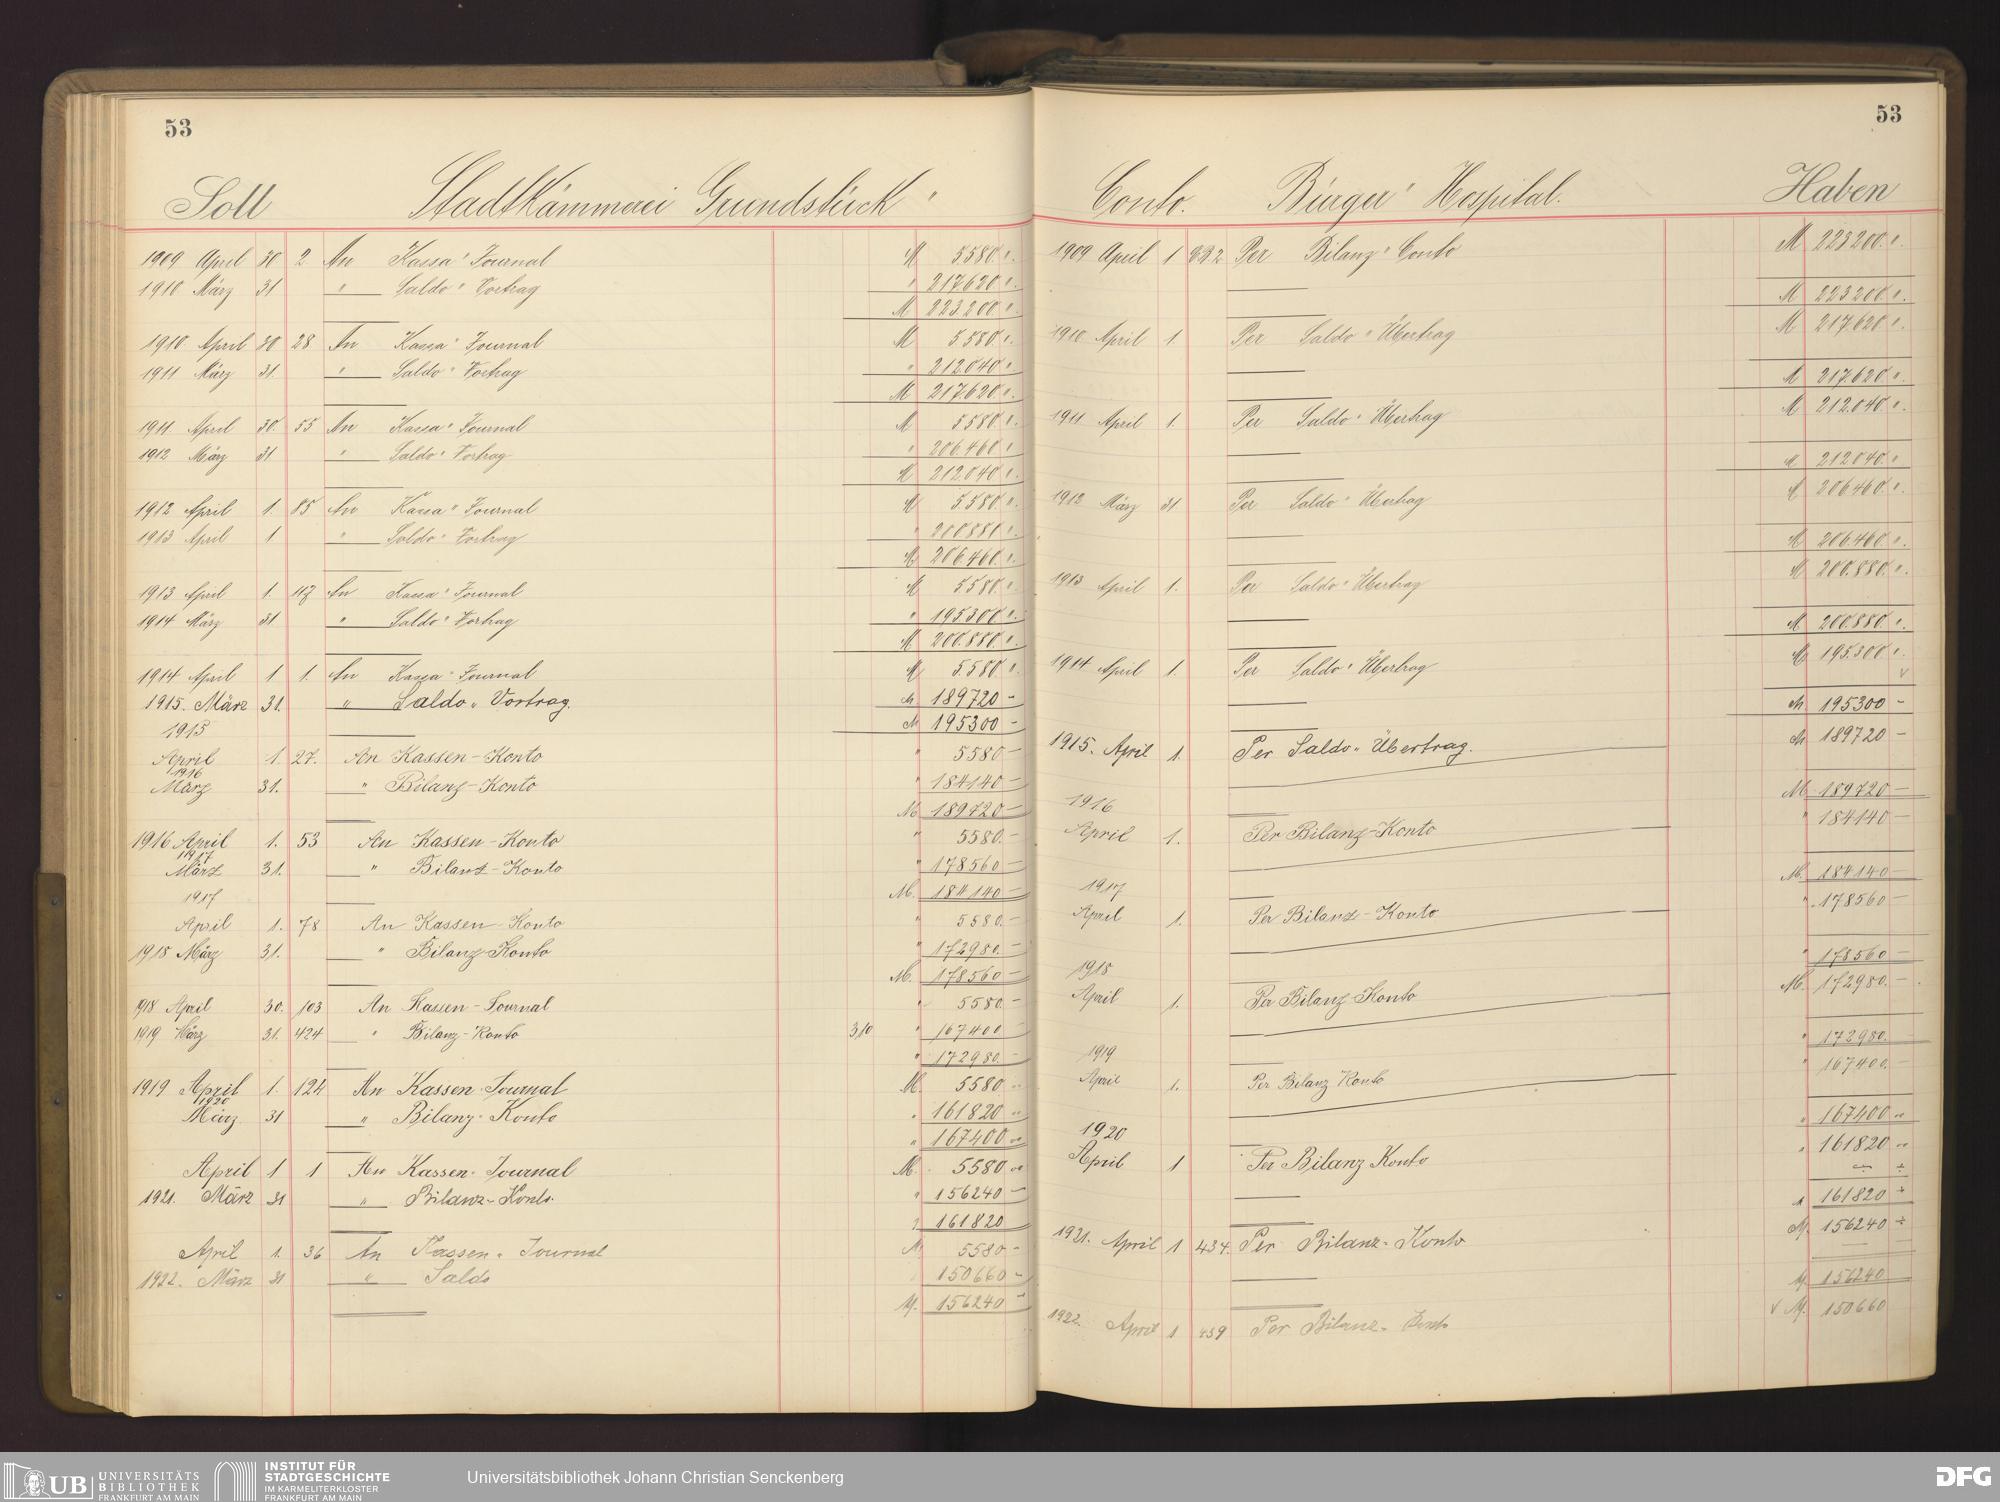 53
Soll Stadtkämmerei Grundstück "
1909 April 30 2 An Kassa " Journal M 5580. ".
1910 März 31 " Saldo " Vortrag " 217620 ".
M 223200 ".
1910. April 30 28 An Kassa " Journal M 5580 ".
1911 März 31. " Saldo " Vortrag " 212040 ".
M 217620 ".
1911. April 30. 55 An Kassa " Journal M 5580 ".
1912 März 31 " Saldo " Vortrag " 206.460 ".
M 212040 ".
1912 April 1. 85 An Kassa " Journal M 5580. ".
1913 April 1 " Saldo " Vortrag " 200880 ".
M 206.460. ".
1913 April 1. 117 An Kassa " Journal M 5580. ".
1914 März 31 " Saldo " Vortrag " 195300 ".
M 200.880. ".
1914 April 1 1. An Kassa " Journal M 5.580 ".
1915. März 31. " Saldo " Vortrag. M 189720 -
1915 M 195300 -
April 1. 27. An Kassen-Konto " 5580 -
1916
März 31. " Bilanz-Konto " 184140 -
M 189720 -
1916 April 1. 53 An Kassen-Konto " 5580. -
1917
März 31. " Bilanz-Konto " 178560 -
1917 M. 184140 -
April 1. 78 An Kassen-Konto " 5580. -
1918 März 31. " Bilanz-Konto " 172980. -
M. 178560 -
1918 April 30. 103 An Kassen-Journal " 5580. -
1919 März 31. 424 " Bilanz-Konto 310 " 167400 -
" 172980. -
1919 April 1. 124 An Kassen-Journal M. 5580 "
1920
März 31 " Bilanz-Konto " 161820 "
" 167400 "
April 1 1 An Kassen-Journal M. 5580 "
1921. März 31 " Bilanz-Konto. " 156240 -
161820
April 1. 36 An Kassen-Journal M 5580 -
1922. März 31 " Saldo 150660 -
M. 156240 -
53
Conto. Bürger " Hospital. Haben
1909 April 1 Per Bilanz " Conto M 223200. ".
M 223200 ".
1910 April 1. Per Saldo " Übertrag M 217.620 ".
M 217.620 ".
1911 April 1. Per Saldo " Übertrag M 212.040 ".
M 212040. "
1912 März 31 Per Saldo " Übertrag M 206460 ".
M 206.460 ".
1913 April 1. Per Saldo " Übertrag M 200.880. ".
M 200.880 ".
1914 April 1. Per Saldo " Übertrag M 195.300 ".
M 195300 -
1915. April 1. Per Saldo " Übertrag. M 189720 -
M 189720 -
1916
April 1. Per Bilanz-Konto " 184140 -
M. 184140 -
1917
April 1. Per Bilanz-Konto " 178560 -
" 178560 -
1918
April 1. Per Bilanz-Konto M. 172980. -
" 172980. -
1919
April 1. Per Bilanz Konto " 167400. -
" 167400 "
1920
April 1 Per Bilanz Konto " 161820 "
161820 ÷
1921. April 1 434. Per Bilanz-Konto M. 156240 ÷
M. 156240
1922. April 1 459 Per Bilanz-Konto M. 150660
UB UNIVERSITÄTS
BIBLIOTHEK
FRANKFURT AM MAIN
INSTITUT FÜR
STADTGESCHICHTE
IM KARMELITERKLOSTER
FRANKFURT AM MAIN
Universitätsbibliothek Johann Christian Senckenberg
DFG